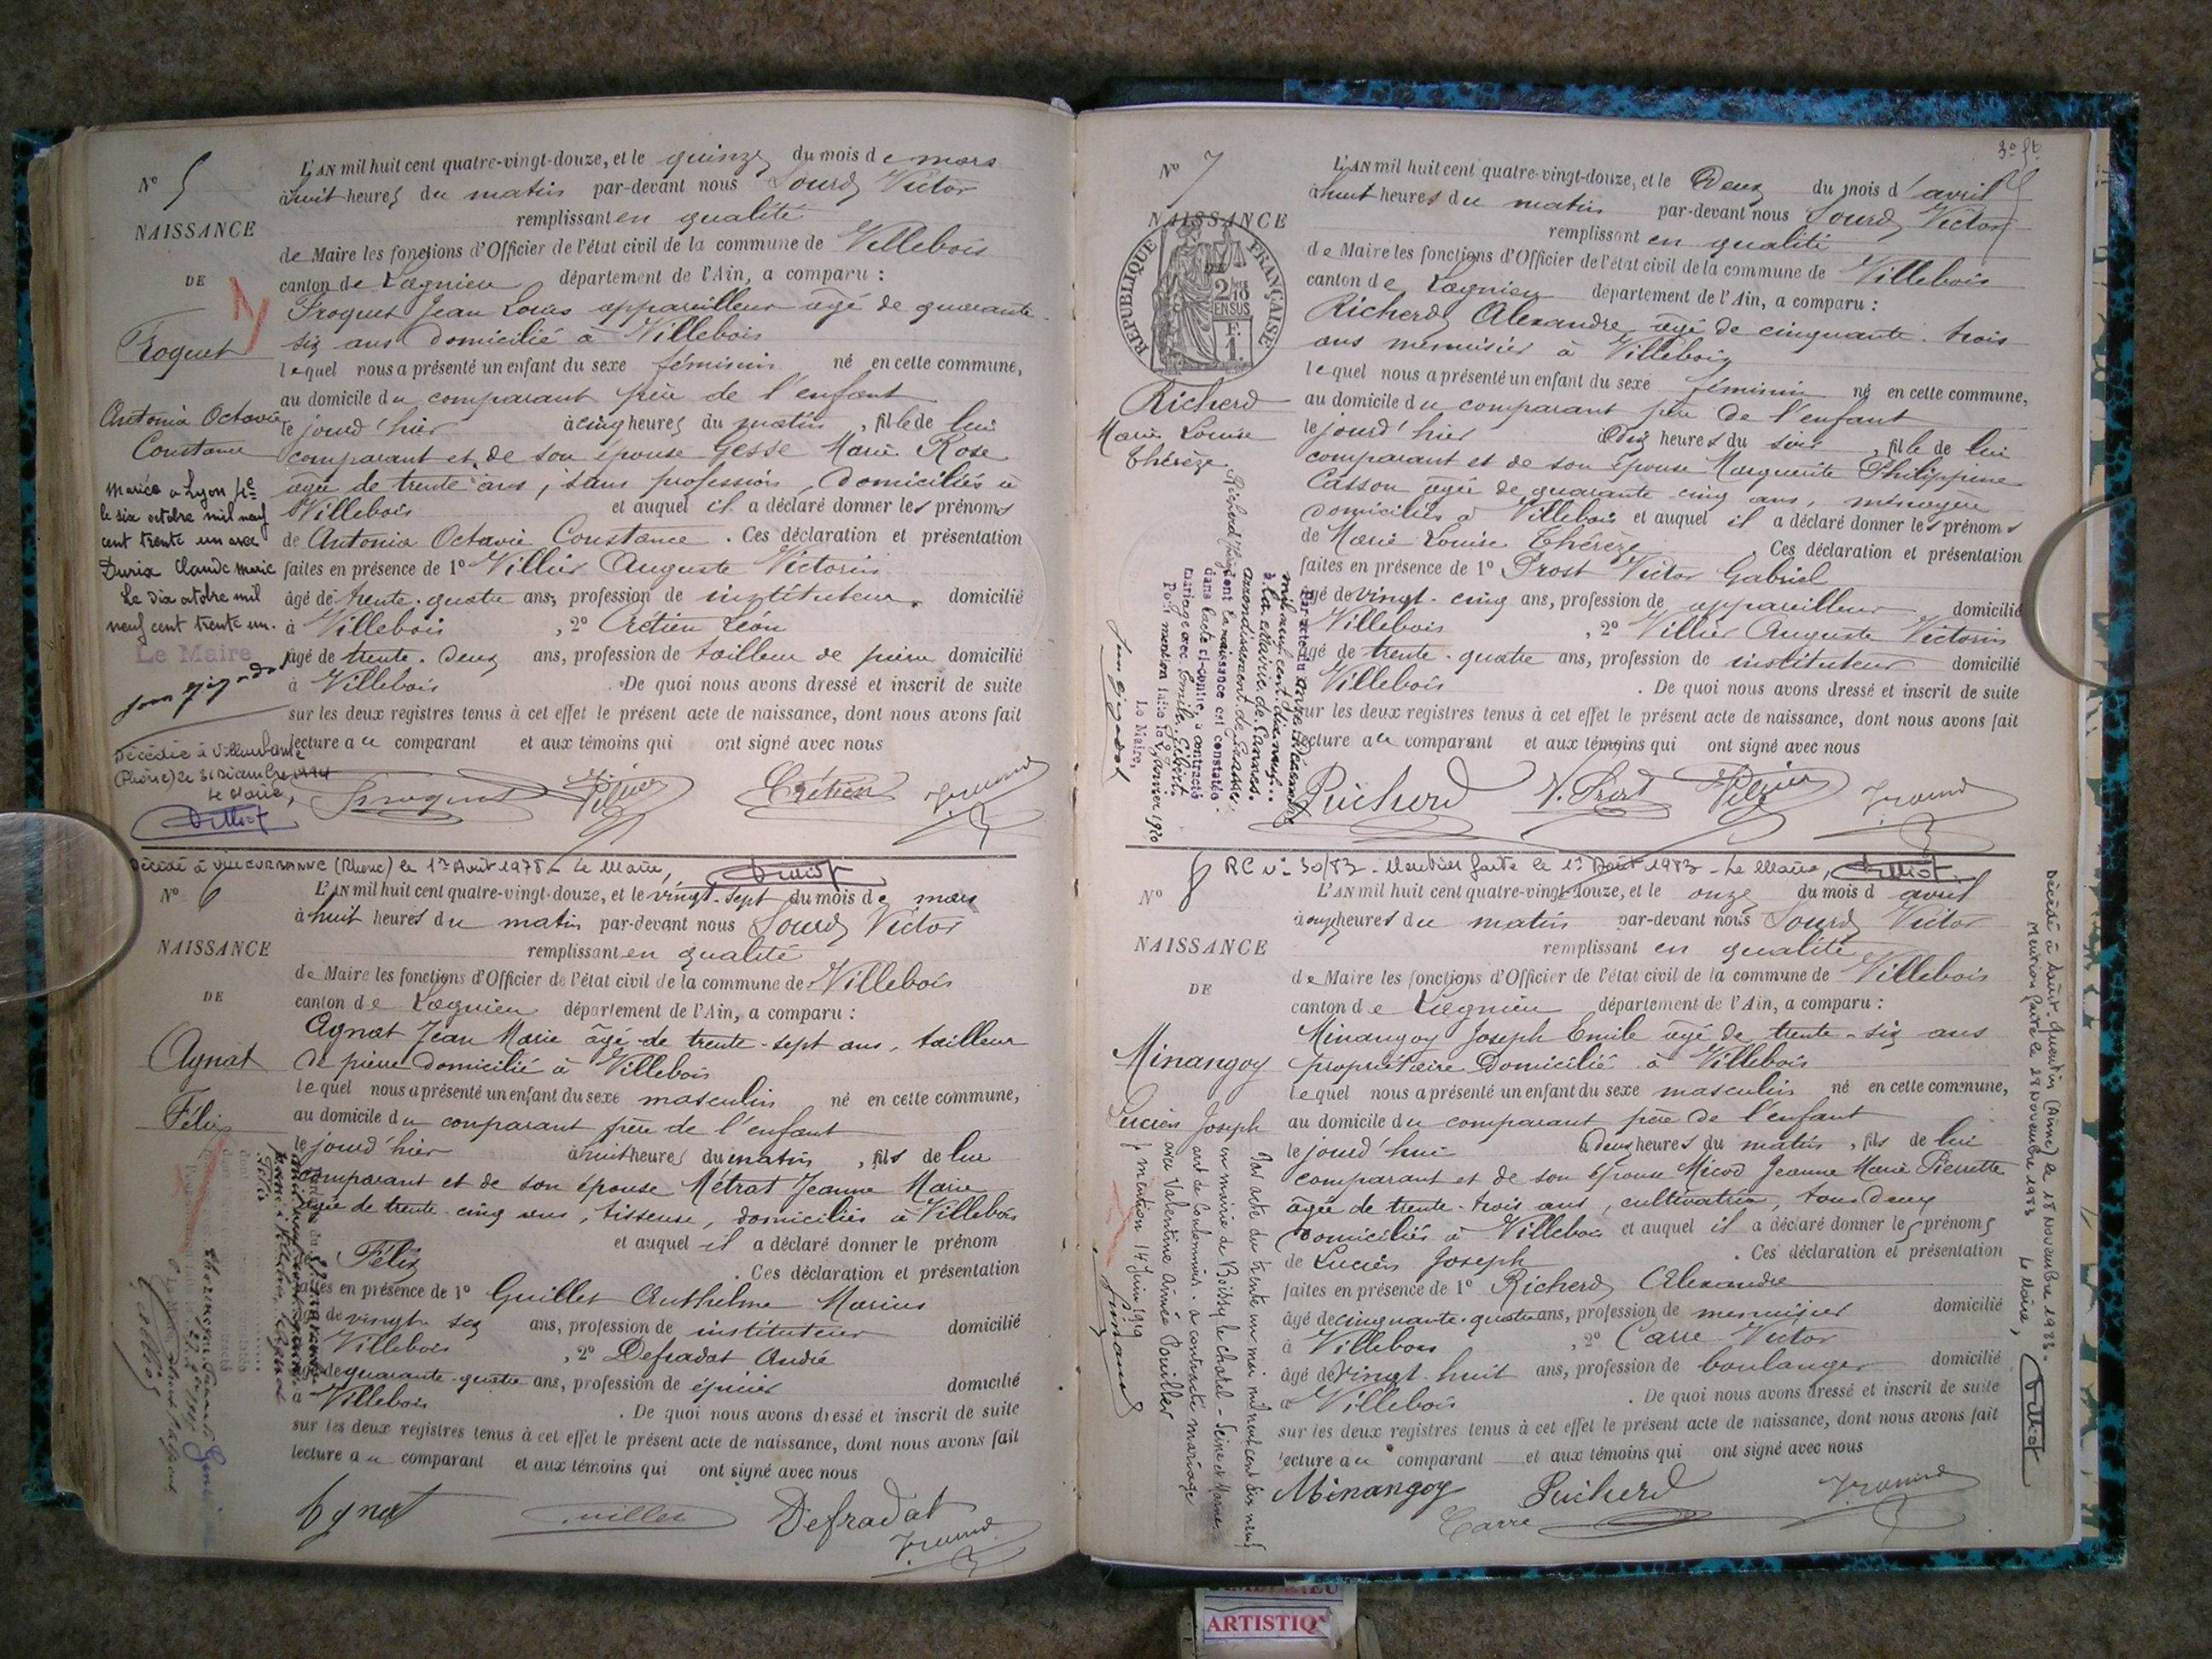 N° 5
NAISSANCE
DE
Froquet
Antonia Octavie
Constance
Mariée à Lyon 4e
le six octobre mil neuf
cent trente un avec
Durix Claude Marie
Le dix octobre mil
neuf cent trente un.
Le Maire
Décédée à Villeurbanne
(Rhône) le 31 Décembre
Le Maire,
L'AN mil huit cent quatre-vingt-douze, et le quinze du mois de mars
à huit heures du matin par-devant nous Lourd Victor
remplissant en qualité
de Maire les fonctions d'Officier de l'état civil de la commune de Villebois
canton de Lagnieu département de l'Ain, a comparu :
Froquet Jean Louis appareilleur âgé de quarante-
six ans domicilié à Villebois
lequel nous a présenté un enfant du sexe féminin né en cette commune,
au domicile du comparant père de l'enfant
le jourd'hier à cinq heures du matin, fille de lui
comparant et de son épouse Gesse Marie Rose
âgée de trente ans, sans profession, domiciliés à
Villebois et auquel il a déclaré donner les prénoms
de Antonia Octavie Constance. Ces déclaration et présentation
faites en présence de 1° Villier Auguste Victorin
âgé de trente-quatre ans, profession de instituteur, domicilié
à Villebois, 2° Crétien Léon
âgé de trente-deux ans, profession de tailleur de pierre domicilié
à Villebois. De quoi nous avons dressé et inscrit de suite
sur les deux registres tenus à cet effet le présent acte de naissance, dont nous avons fait
lecture au comparant et aux témoins qui ont signé avec nous
Froquet Villier Crétien
Décédé à VILLEURBANNE (Rhône) le 1er Août 1975 Le Maire,
N° 6
NAISSANCE
DE
Agnat
Félix
L'AN mil huit cent quatre-vingt-douze, et le vingt-sept du mois de mars
à huit heures du matin par-devant nous Lourd Victor
remplissant en qualité
de Maire les fonctions d'Officier de l'état civil de la commune de Villebois
canton de Lagnieu département de l'Ain, a comparu :
Agnat Jean Marie âgé de trente-sept ans, tailleur
de pierre domicilié à Villebois
lequel nous a présenté un enfant du sexe masculin né en cette commune,
au domicile du comparant père de l'enfant
le jourd'hier à huit heures du matin, fils de lui
comparant et de son épouse Métrat Jeanne Marie
âgée de trente cinq ans, tisseuse, domiciliés à Villebois
et auquel il a déclaré donner le prénom
Félix. Ces déclaration et présentation
faites en présence de 1° Guillet Anthelme Marius
âgé de vingt six ans, profession de instituteur domicilié
Villebois, 2° Defradat André
âgé de quarante-quatre ans, profession de épicier domicilié
à Villebois. De quoi nous avons dressé et inscrit de suite
sur les deux registres tenus à cet effet le présent acte de naissance, dont nous avons fait
lecture au comparant et aux témoins qui ont signé avec nous
Agnat Guillet Defradat
N° 7
NAISSANCE
RÉPUBLIQUE FRANÇAISE
2/10
EN SUS
F.
1.
Richerd
Marie Louise
Thérèze
dont la naissance est constatée
dans l'acte ci-contre, a contracté
mariage avec
Le Maire,
L'AN mil huit cent quatre-vingt-douze, et le Deux du mois d'avril
à huit heures du matin par-devant nous Lourd Victor
remplissant en qualité
de Maire les fonctions d'Officier de l'état civil de la commune de Villebois
canton de Lagnieu département de l'Ain, a comparu :
Richerd Alexandre, âgé de cinquante-trois
ans menuisier à Villebois
lequel nous a présenté un enfant du sexe féminin né en cette commune,
au domicile du comparant père de l'enfant
le jourd'hier à dix heures du soir, fille de lui
comparant et de son épouse Marguerite Philippine
Casson âgée de quarante cinq ans, ménagère
domiciliés à Villebois et auquel il a déclaré donner les prénoms
de Marie Louise Thérèze. Ces déclaration et présentation
faites en présence de 1° Prost Victor Gabriel
âgé de vingt-cinq ans, profession de appareilleur domicilié
Villebois, 2° Villier Auguste Victorin
âgé de trente-quatre ans, profession de instituteur domicilié
Villebois. De quoi nous avons dressé et inscrit de suite
sur les deux registres tenus à cet effet le présent acte de naissance, dont nous avons fait
lecture au comparant et aux témoins qui ont signé avec nous
Richerd V. Prost Villier
RC n° 30/83 - Mention faite le 1er Août 1983 - Le Maire,
N° 8
NAISSANCE
DE
Minangoy
Lucien Joseph
Par acte du trente un mai mil neuf cent dix neuf
en mairie de Boissy le châtel - Seine et Marne
a contracté mariage
avec Valentine Aimée Pouiller
mention 14 Juin 1919
L'AN mil huit cent quatre-vingt-douze, et le onze du mois d avril
à onze heures du matin par-devant nous Lourd Victor
remplissant en qualité
de Maire les fonctions d'Officier de l'état civil de la commune de Villebois
canton de Lagnieu département de l'Ain, a comparu :
Minangoy Joseph Emile âgé de trente-six ans
propriétaire domicilié à Villebois
lequel nous a présenté un enfant du sexe masculin né en cette commune,
au domicile du comparant père de l'enfant
le jourd'hui à deux heures du matin, fils de lui
comparant et de son épouse Micod Jeanne Marie Pierrette
âgée de trente-trois ans, cultivatrice, tous deux
domiciliés à Villebois et auquel il a déclaré donner les prénoms
de Lucien Joseph. Ces déclaration et présentation
faites en présence de 1° Richerd Alexandre
âgé de cinquante-quatre ans, profession de menuisier domicilié
à Villebois, 2° Carre Victor
âgé de vingt-huit ans, profession de boulanger domicilié
à Villebois. De quoi nous avons dressé et inscrit de suite
sur les deux registres tenus à cet effet le présent acte de naissance, dont nous avons fait
lecture au comparant et aux témoins qui ont signé avec nous
Minangoy Richerd
Carre
Décédé à Saint-Quentin (Aisne) le 18 Novembre 1983 -
Mention faite le 28 Novembre 1983 Le Maire,
ARTISTIQ